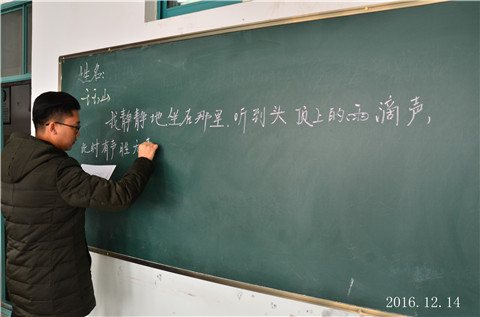 姓名:
我静静地坐在那里,听到头顶上的雨滴声,
此时有声胜无
2016.12.14